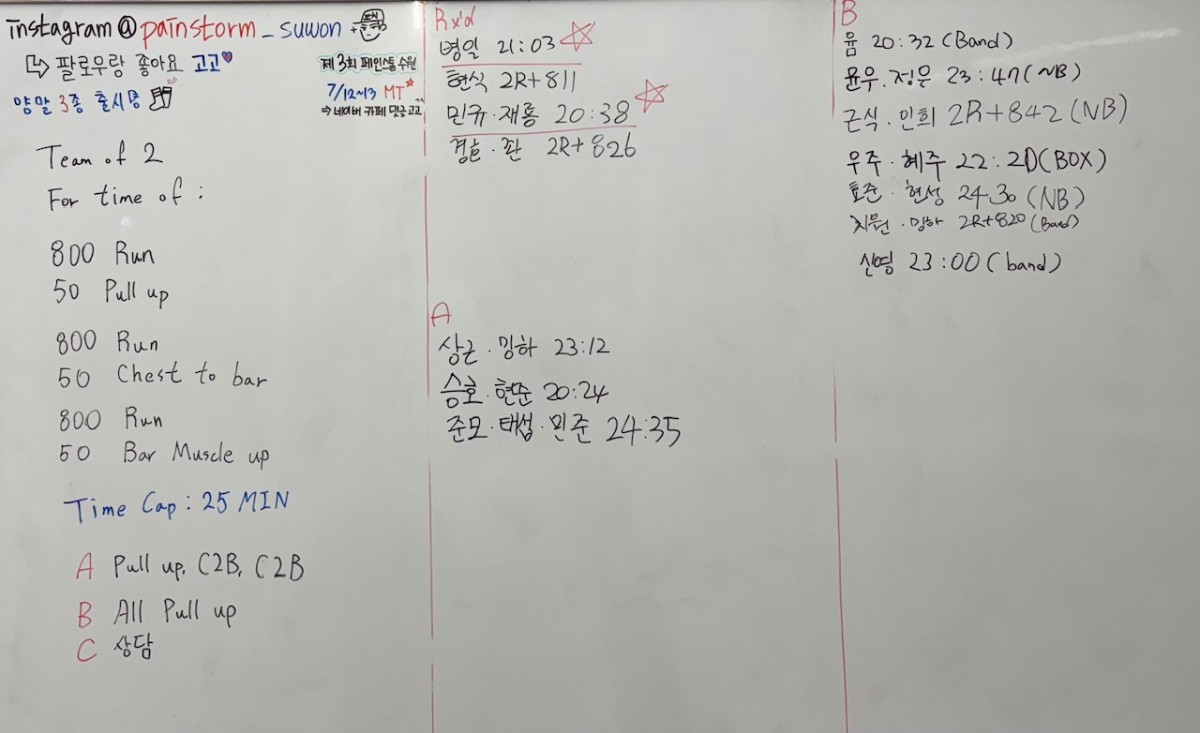 instagram@painstorm_suwon
↳ 팔로우랑 좋아요 고고♥
양말 3종 출시중
제 3회 페인스톰 수원
7/12~13 MT
⇒ 네이버 카페 댓글 고고
Team of 2
For time of :
800 Run
50 Pull up
800 Run
50 Chest to bar
800 Run
50 Bar Muscle up
Time Cap : 25 MIN
A Pull up, C2B, C2B
B All Pull up
C 상담
Rx'd
병일 21:03
현식 2R+811
민규·재룡 20:38
2R+826
A
상근·밍하 23:12
승호·현준 20:24
준모·태섭·민준 24:35
B
윰 20:32 (Band)
윤우·정은 23:47 (~NB)
근식·인희 2R+842 (NB)
우주·혜주 22:20 (BOX)
호준·현성 24:30 (NB)
지원·밍하 2R+820 (Band)
신영 23:00 (band)